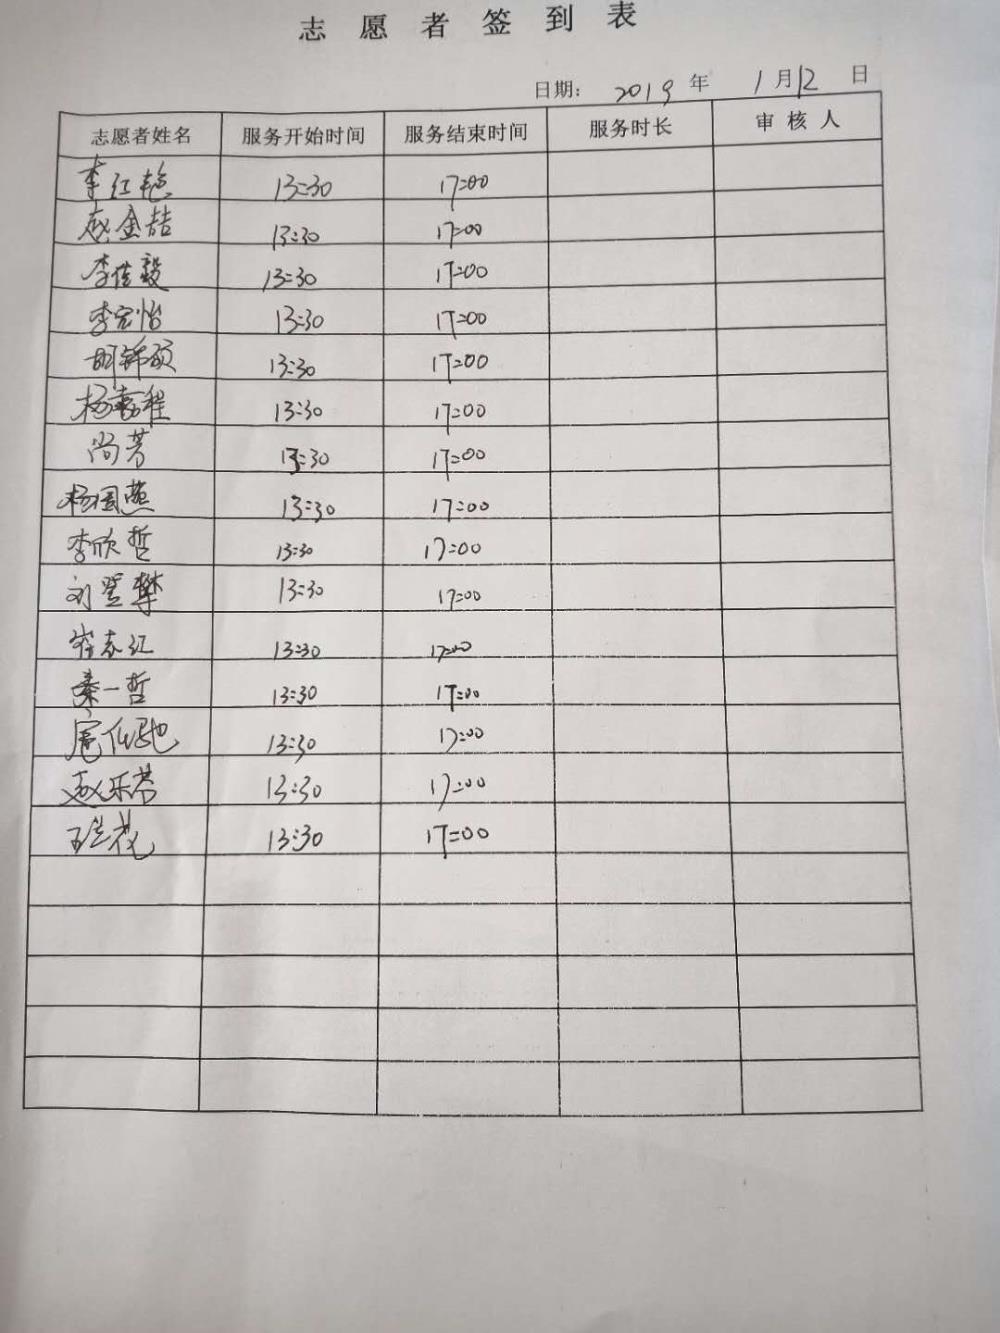 志愿者签到表
日期： 2019 年 1月12 日
志愿者姓名 服务开始时间 服务结束时间 服务时长 审核人
李红艳 13:30 17:00
赵金喆 13:30 17:00
李佳毅 13:30 17:00
李宏怡 13:30 17:00
胡锦硕 13:30 17:00
杨嘉程 13:30 17:00
尚芳 13:30 17:00
杨国燕 13:30 17:00
李欣哲 13:30 17:00
刘昱攀 13:30 17:00
崔志红 13:30 17:00
秦一哲 13:30 17:00
13:30 17:00
赵乐芾 13:30 17:00
王兰花 13:30 17:00